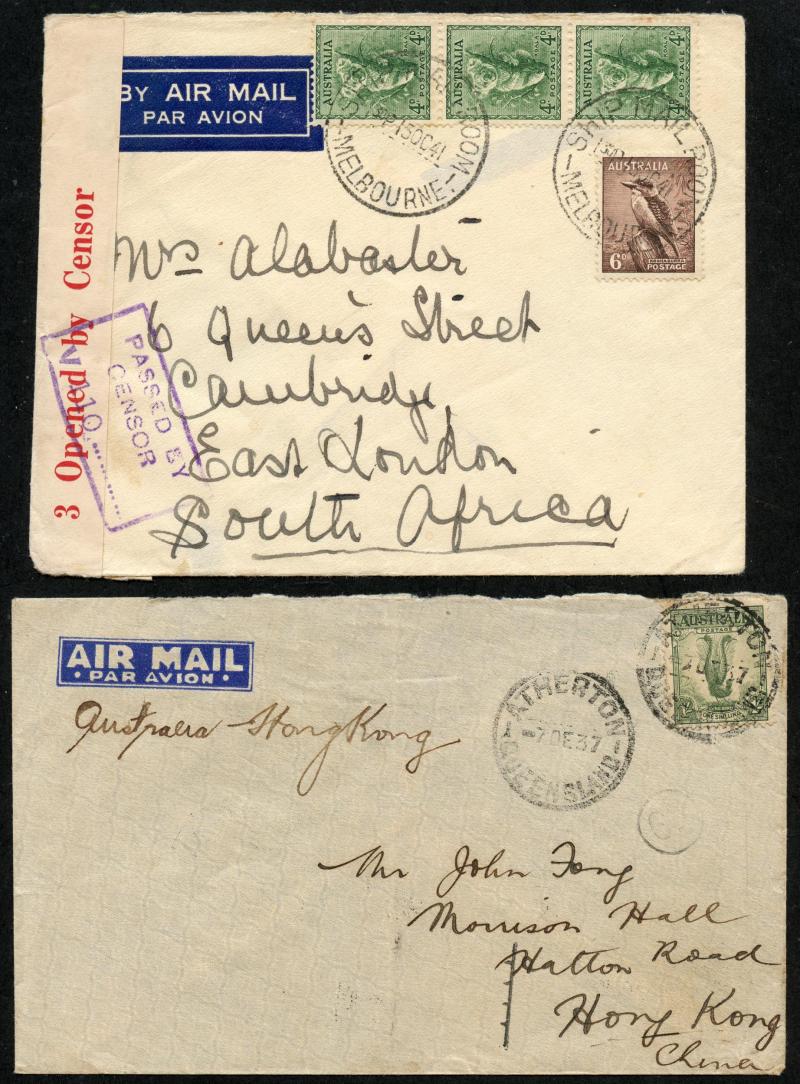 BY AIR MAIL
PAR AVION
AUSTRALIA
4D
POSTAGE
AUSTRALIA
4D
POSTAGE
AUSTRALIA
4D
POSTAGE
SHIP MAIL ROOM
15OC41
-MELBOURNE-
SHIP MAIL ROOM
-MELBOURNE-
AUSTRALIA
6D
KOOKABURRA
POSTAGE
3 Opened by Censor
PASSED BY
CENSOR
110
Mrs Alabaster
6 Queen's Street
Cambridge
East London
South Africa
AIR MAIL
· PAR AVION ·
Australia HongKong
-ATHERTON-
-7DE37
QUEENSLAND
ATHERTON
AUSTRALIA
POSTAGE
ONE SHILLING
Mr John Fong
Morrison Hall
Hatton Road
Hong Kong
China